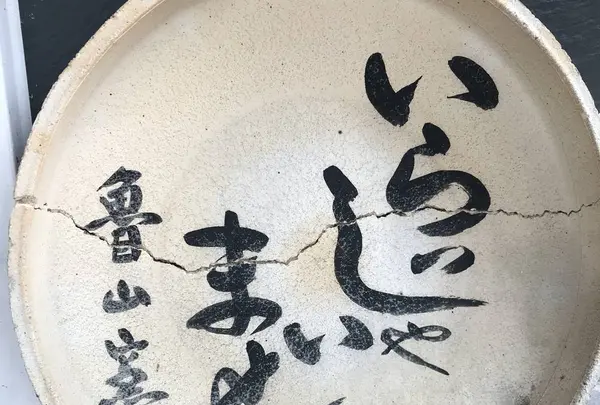 いらっ
しゃい
ま
魯山